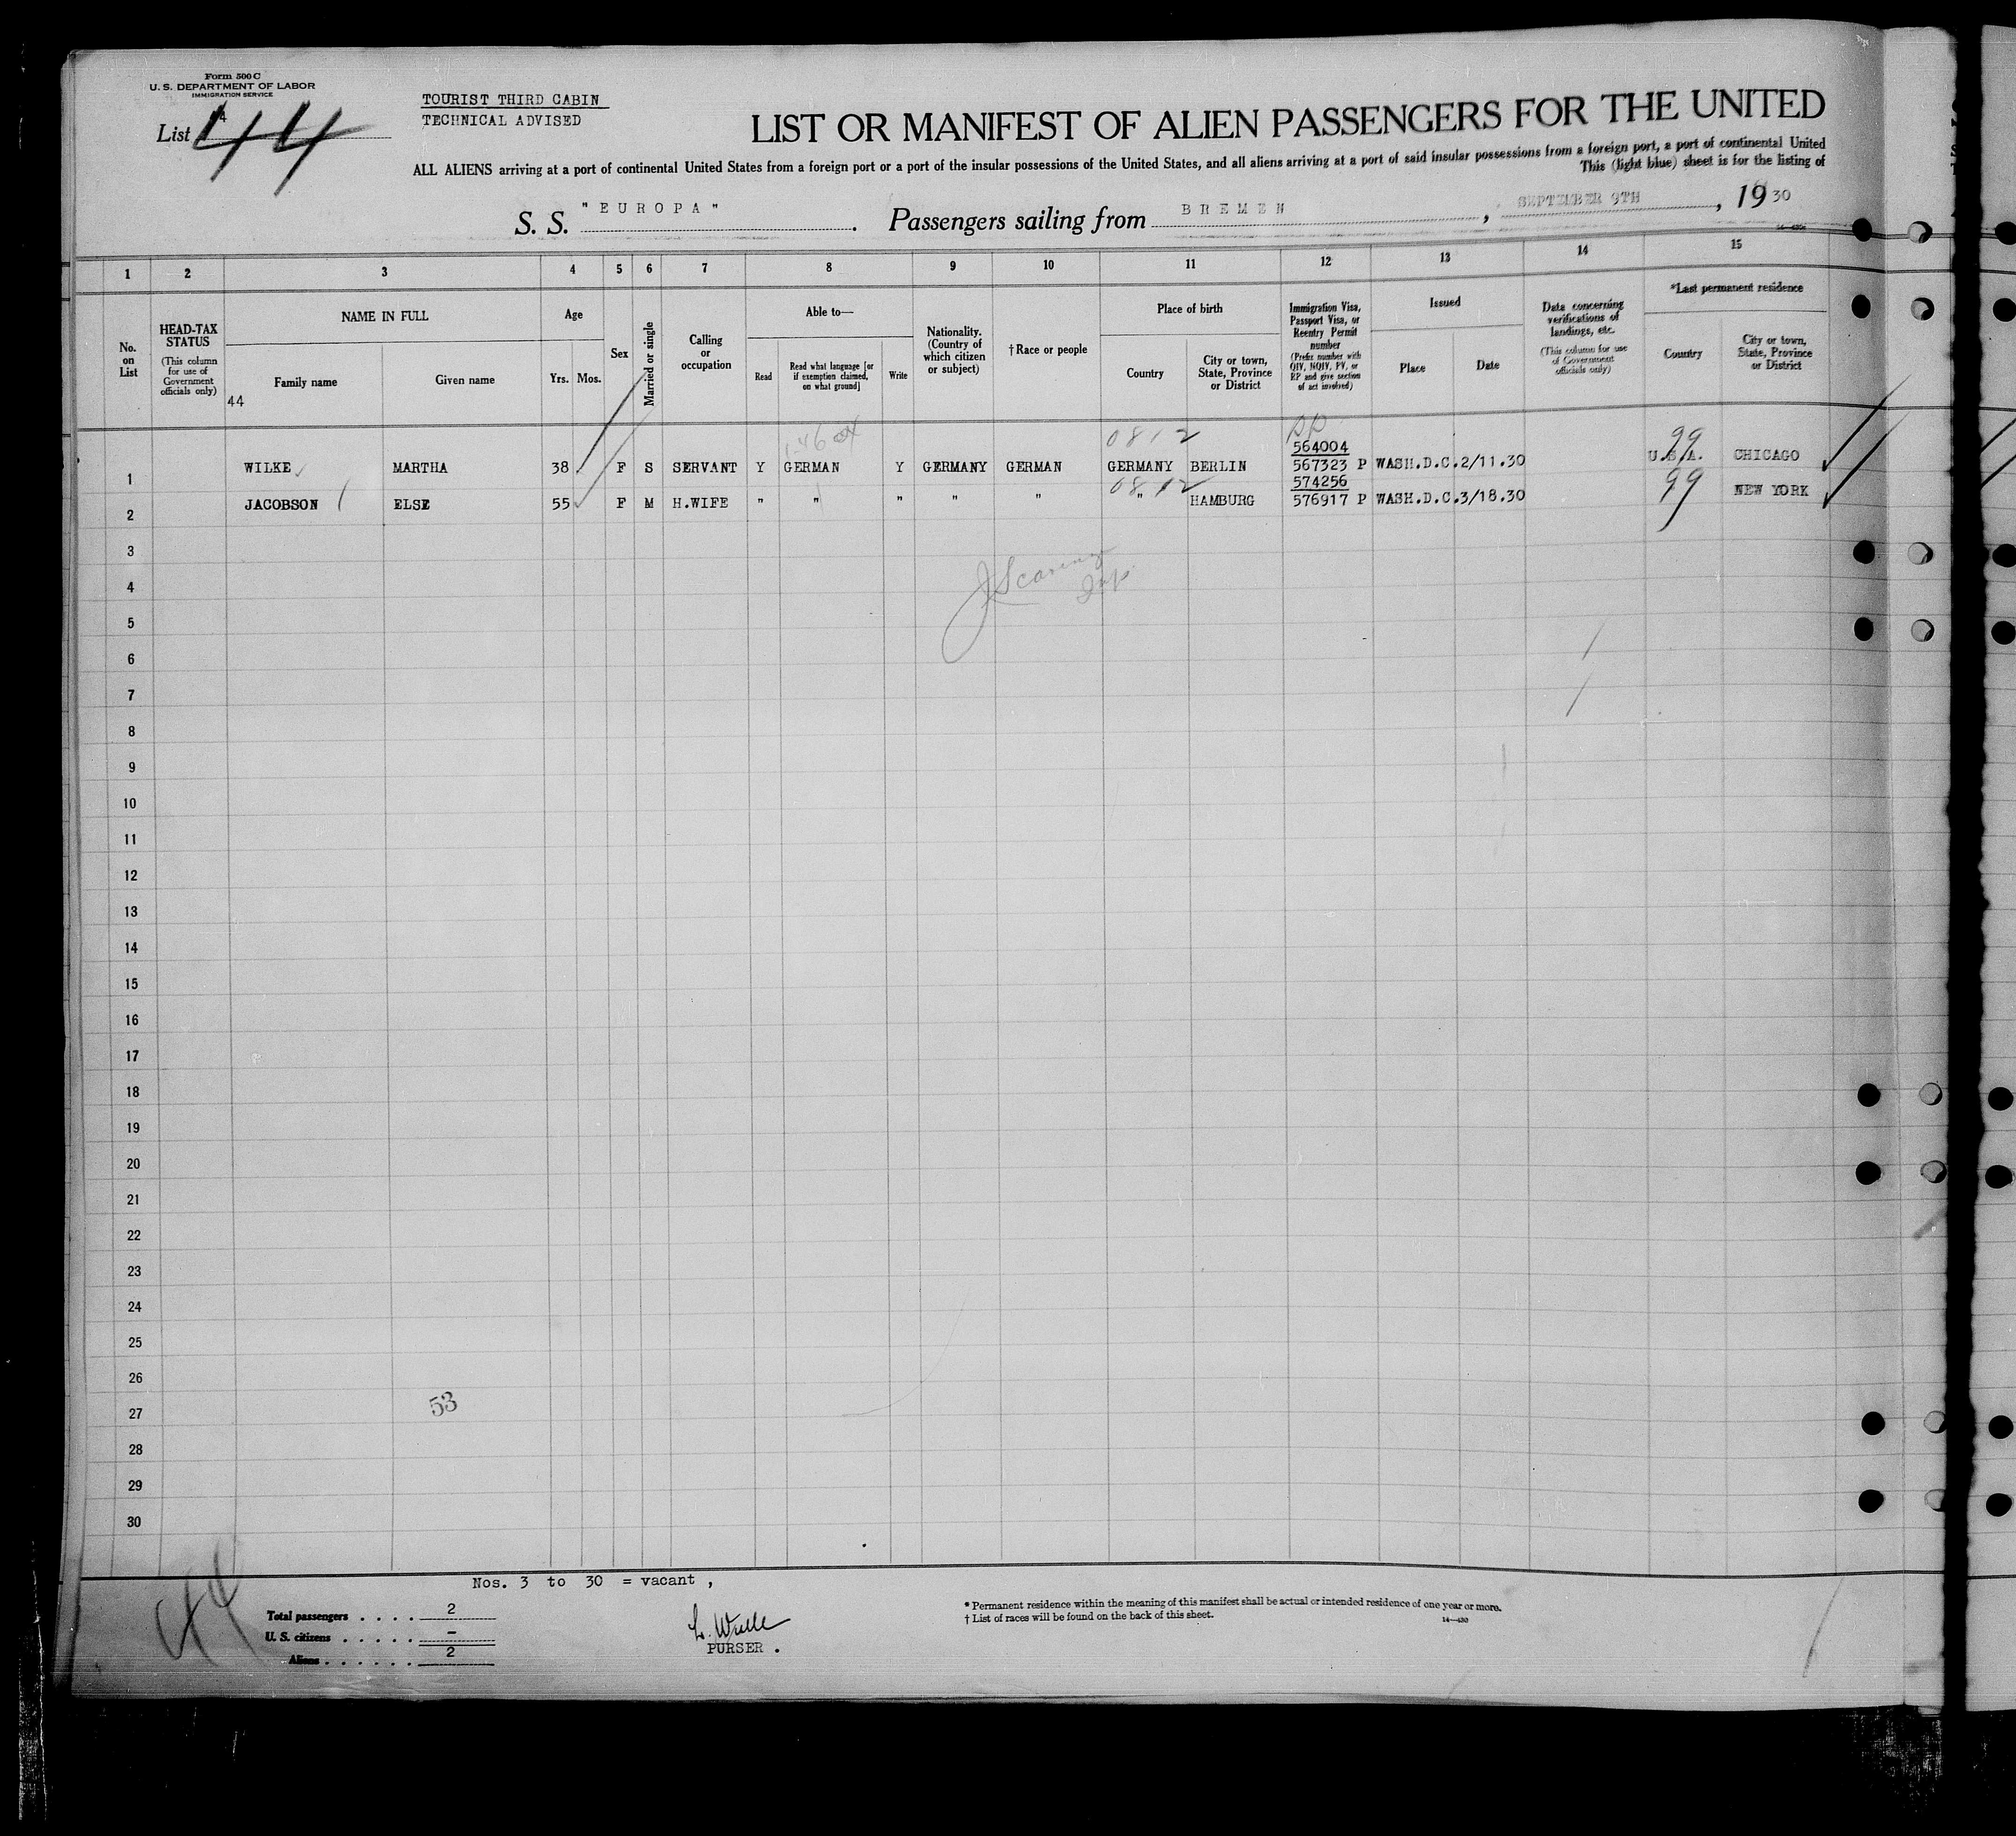 Form 500 C
U. S. DEPARTMENT OF LABOR
IMMIGRATION SERVICE
List 44
TOURIST THIRD CABIN
TECHNICAL ADVISED
LIST OR MANIFEST OF ALIEN PASSENGERS FOR THE UNITED
ALL ALIENS arriving at a port of continental United States from a foreign port or a port of the insular possessions of the United States, and all aliens arriving at a port of said insular possessions from a foreign port, a port of continental United
This (light blue) sheet is for the listing of
S. S. "EUROPA". Passengers sailing from BREMEN, SEPTEMBER 9TH, 1930
1 2 3 4 5 6 7 8 9 10 11 12 13 14 15
No. on List
HEAD-TAX STATUS
(This column for use of Government officials only)
NAME IN FULL
Family name
Given name
44
Age
Yrs. Mos.
Sex
Married or single
Calling or occupation
Able to—
Read
Read what language [or if exemption claimed, on what ground]
Write
Nationality. (Country of which citizen or subject)
†Race or people
Place of birth
Country
City or town, State, Province or District
Immigration Visa, Passport Visa, or Reentry Permit number
(Prefix number with QIV, NQIV, PV, or RP and give section of act involved)
Issued
Place
Date
Data concerning verifications of landings, etc.
(This column for use of Government officials only)
*Last permanent residence
Country
City or town, State, Province or District
0812
564004
99
1 WILKE MARTHA 38 F S SERVANT Y GERMAN Y GERMANY GERMAN GERMANY BERLIN 567323 P WASH.D.C. 2/11.30 U.S.A. CHICAGO
0812
574256
99
2 JACOBSON ELSE 55 F M H.WIFE " " " " " " HAMBURG 576917 P WASH.D.C. 3/18.30 NEW YORK
3
4
5
6
7
8
9
10
11
12
13
14
15
16
17
18
19
20
21
22
23
24
25
26
27
53
28
29
30
Nos. 3 to 30 = vacant,
44
Total passengers . . . . 2
U. S. citizens . . . . . –
Aliens . . . . . . 2
PURSER .
* Permanent residence within the meaning of this manifest shall be actual or intended residence of one year or more.
† List of races will be found on the back of this sheet.
14—430